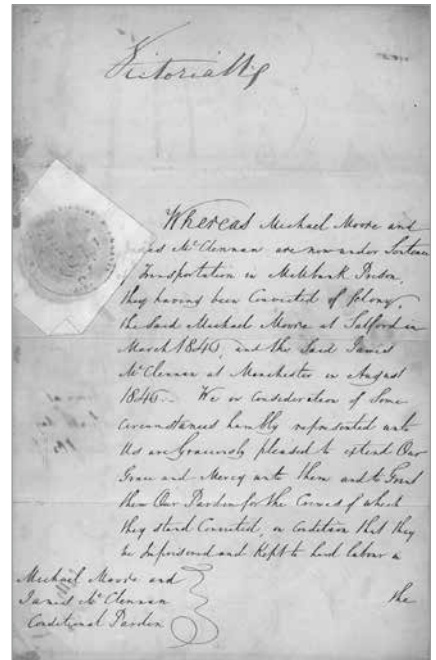 Victoria R
Whereas Michael Moore and
James McClennan are now under Sentence
of Transportation in Millbank Prison,
they having been Convicted of felony,
the Said Michael Moore at Salford in
March 1846, and the Said James
McClennan at Manchester in August
1846. We in Consideration of Some
Circumstances humbly represented unto
Us are Graciously pleased to extend Our
Grace and Mercy unto them and to Grant
them Our Pardon for the Crimes of which
they stand Convicted, on Condition that they
be Imprisoned and Kept to hard labour in
the
Michael Moore and
James McClennan
Conditional Pardon